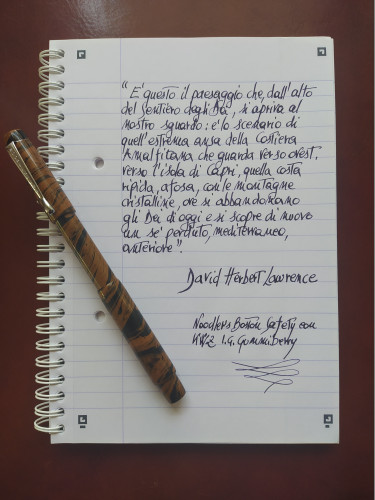 "E' questo il paesaggio che, dall'alto
del sentiero degli Dei, si apriva al
nostro sguardo: è lo scenario di
quell'estrema ansa della Costiera
Amalfitana che guarda verso ovest,
verso l'isola di Capri, quella costa
ripida, afosa, con le montagne
cristalline, ove si abbandonano
gli Dei di oggi e si scopre di nuovo
un sé perduto, mediterraneo,
anteriore".
David Herbert Lawrence
Noodler's Boston Safety con
I.G. Gummiberry